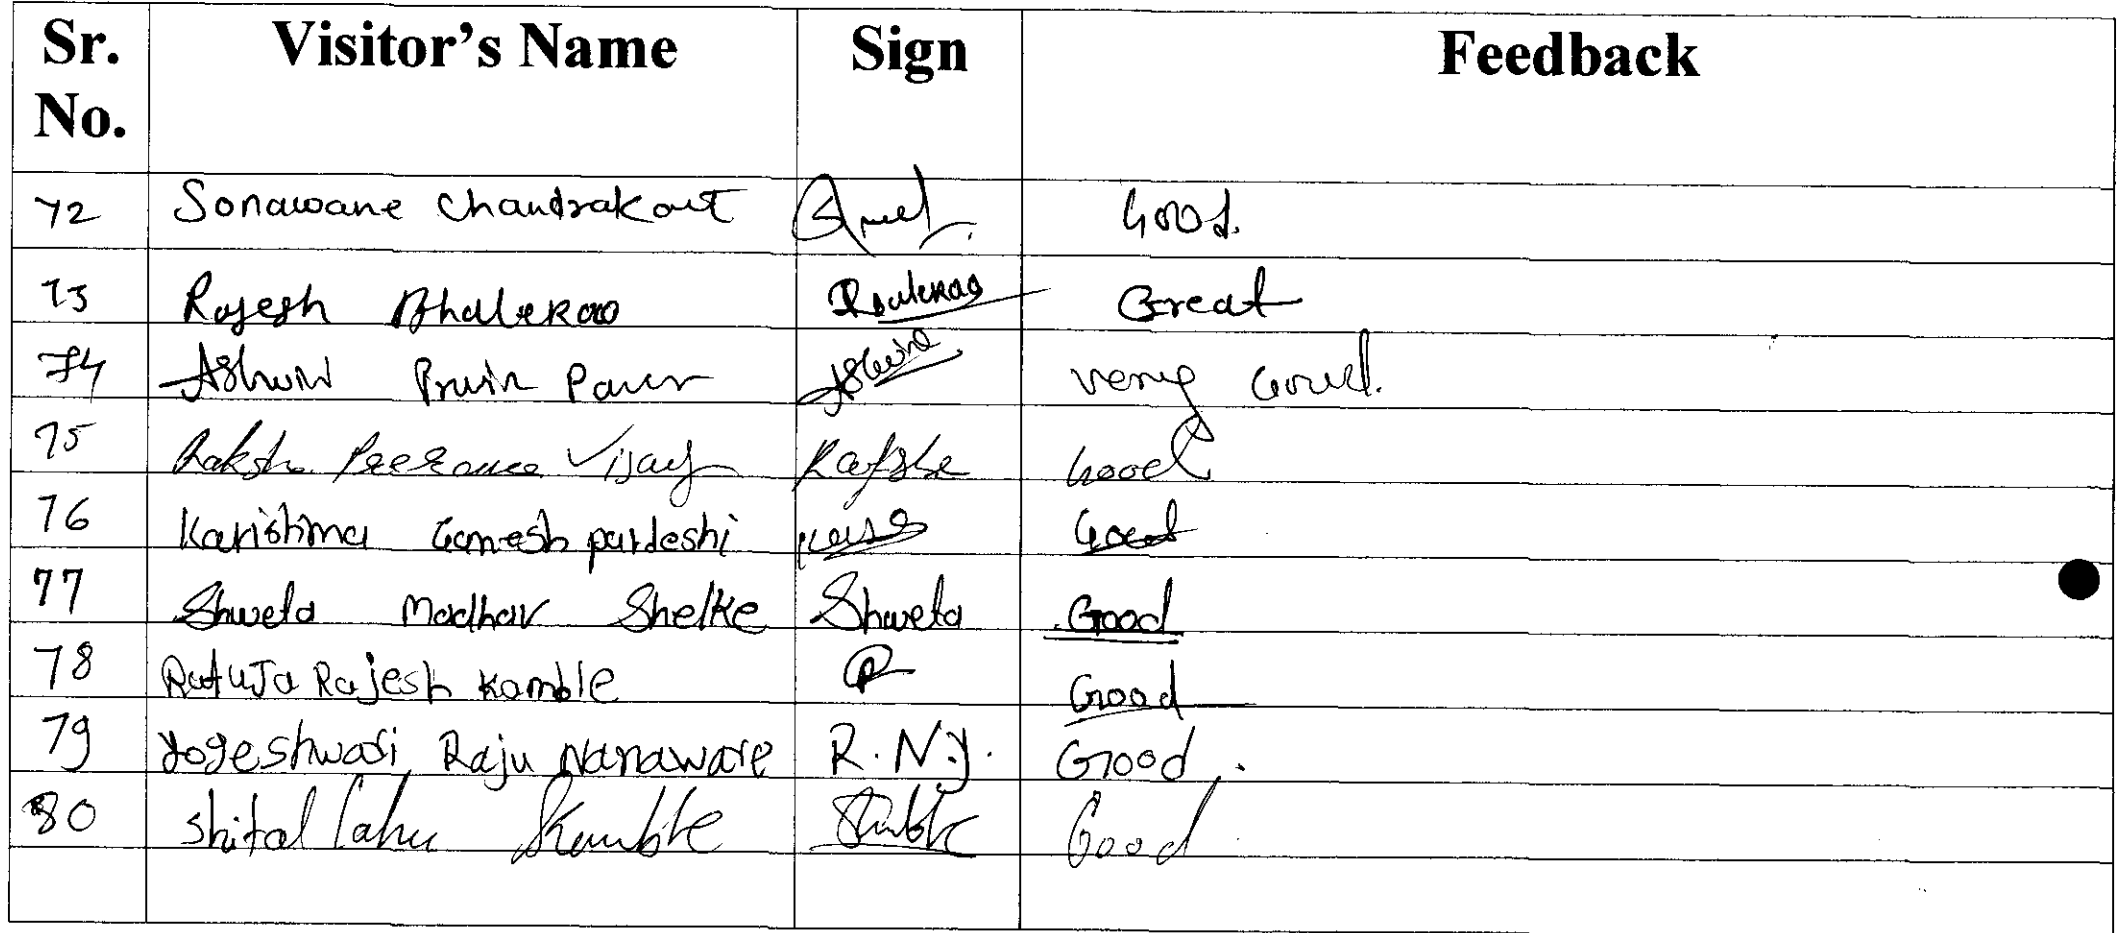 Sr. No. Visitor's Name Sign Feedback
72 Sonawane Chandrakant Good.
73 Rajesh Bhalerao Great
74 Ashwini Pravin Pawar Very Good.
75 Vijay Good
76 Karishma Ganesh pardeshi Good
77 Shweta Madhav Shelke Shweta Good
78 Rutuja Rajesh Kamble R Good
79 Yogeshwari Raju Nanaware R.N.Y. Good.
80 Shital Lahu Kamble Good